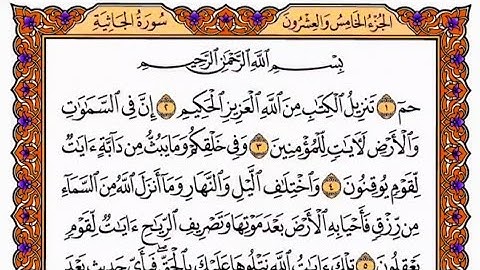 سُورَةُ الجَاثِيَةِ
الجُزْءُ الخَامِسُ وَالعِشْرُونَ
بِسْمِ ٱللَّهِ ٱلرَّحْمَٰنِ ٱلرَّحِيمِ
حمٓ ١ تَنزِيلُ ٱلْكِتَٰبِ مِنَ ٱللَّهِ ٱلْعَزِيزِ ٱلْحَكِيمِ ٢ إِنَّ فِى ٱلسَّمَٰوَٰتِ
وَٱلْأَرْضِ لَءَايَٰتٍ لِّلْمُؤْمِنِينَ ٣ وَفِى خَلْقِكُمْ وَمَا يَبُثُّ مِن دَآبَّةٍ ءَايَٰتٌ
لِّقَوْمٍ يُوقِنُونَ ٤ وَٱخْتِلَٰفِ ٱلَّيْلِ وَٱلنَّهَارِ وَمَآ أَنزَلَ ٱللَّهُ مِنَ ٱلسَّمَآءِ
مِن رِّزْقٍ فَأَحْيَا بِهِ ٱلْأَرْضَ بَعْدَ مَوْتِهَا وَتَصْرِيفِ ٱلرِّيَٰحِ ءَايَٰتٌ لِّقَوْمٍ
يَعْقِلُونَ ٥ تِلْكَ ءَايَٰتُ ٱللَّهِ نَتْلُوهَا عَلَيْكَ بِٱلْحَقِّ ۖ فَبِأَىِّ حَدِيثٍۭ بَعْدَ